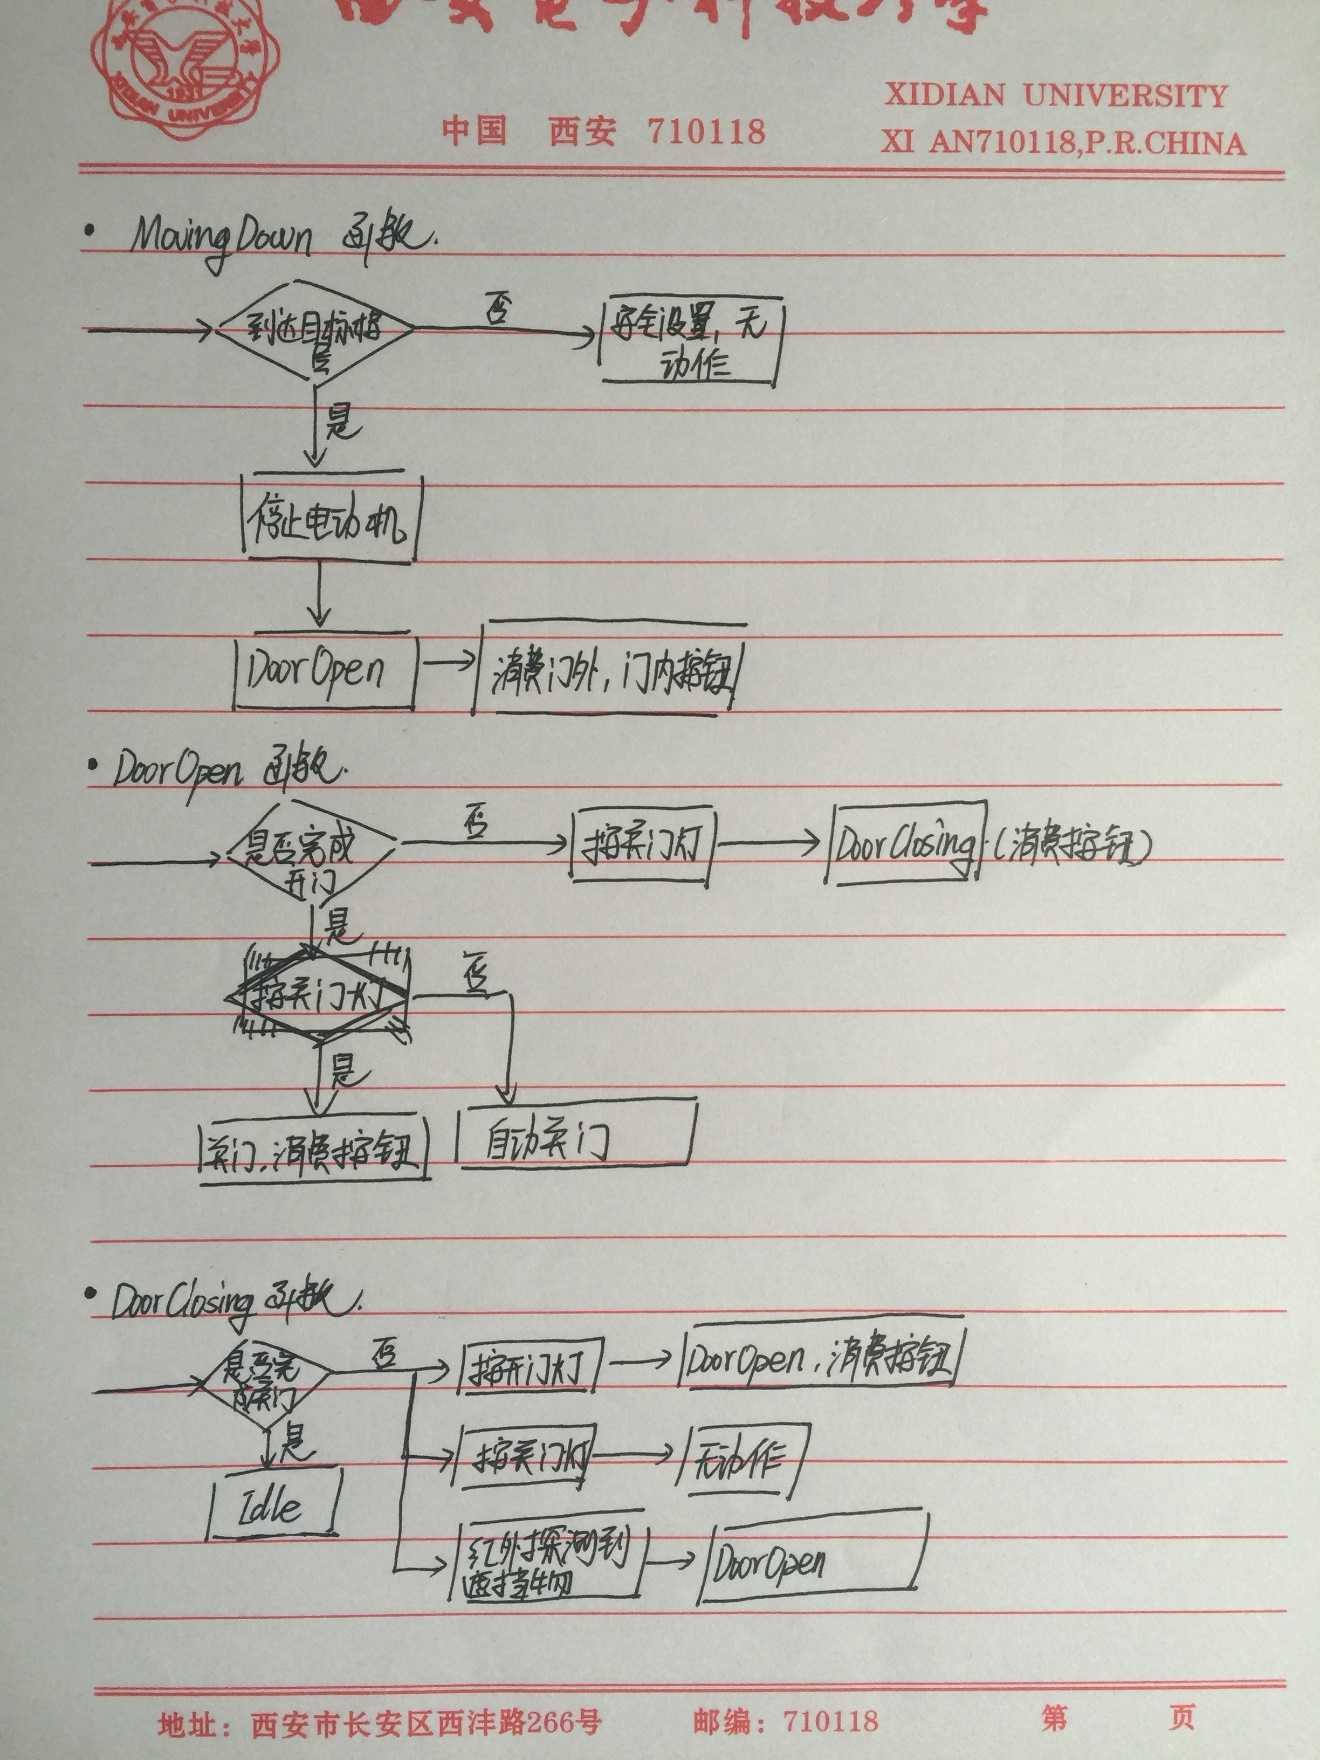 西安电子科技大学
1931
XIDIAN UNIVERSITY
XIDIAN UNIVERSITY
中国 西安 710118
XI AN710118,P.R.CHINA
· MovingDown 函数.
到达目标楼
层
否
安全设置,无
动作
是
停止电动机
DoorOpen
消费门外,门内按钮
· DoorOpen 函数.
是否完成
开门
否
按关门灯
DoorClosing (消费按钮)
是
按关门灯
否
是
关门,消费按钮
自动关门
· DoorClosing 函数.
是否完
成关门
否
按开门灯
DoorOpen,消费按钮
是
按关门灯
无动作
Idle
红外探测到
遮挡物
DoorOpen
地址：西安市长安区西沣路266号 邮编：710118 第 页